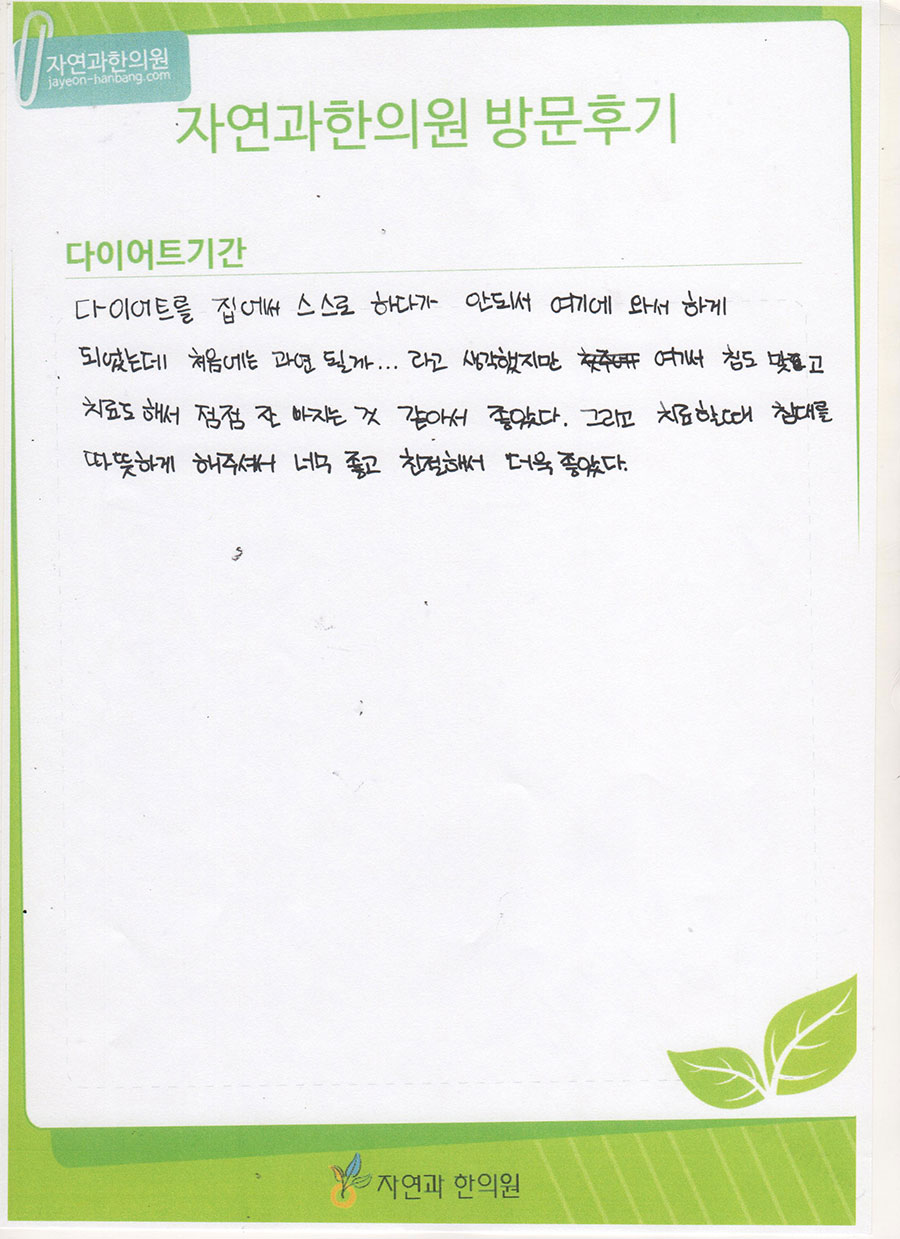 자연과한의원
jayeon-hanbang.com
자연과한의원 방문후기
다이어트기간
다이어트를 집에써 스스로 하다가 안되서 여기에 와서 하게
되었는데 처음에는 과연 될까... 라고 생각했지만 여기써 침도 맞고
치료도 해서 점점 잘 빠지는 것 같아서 좋았다. 그리고 치료할때 침대를
따뜻하게 해주셔서 너무 좋고 친절해서 더욱 좋았다.
자연과 한의원